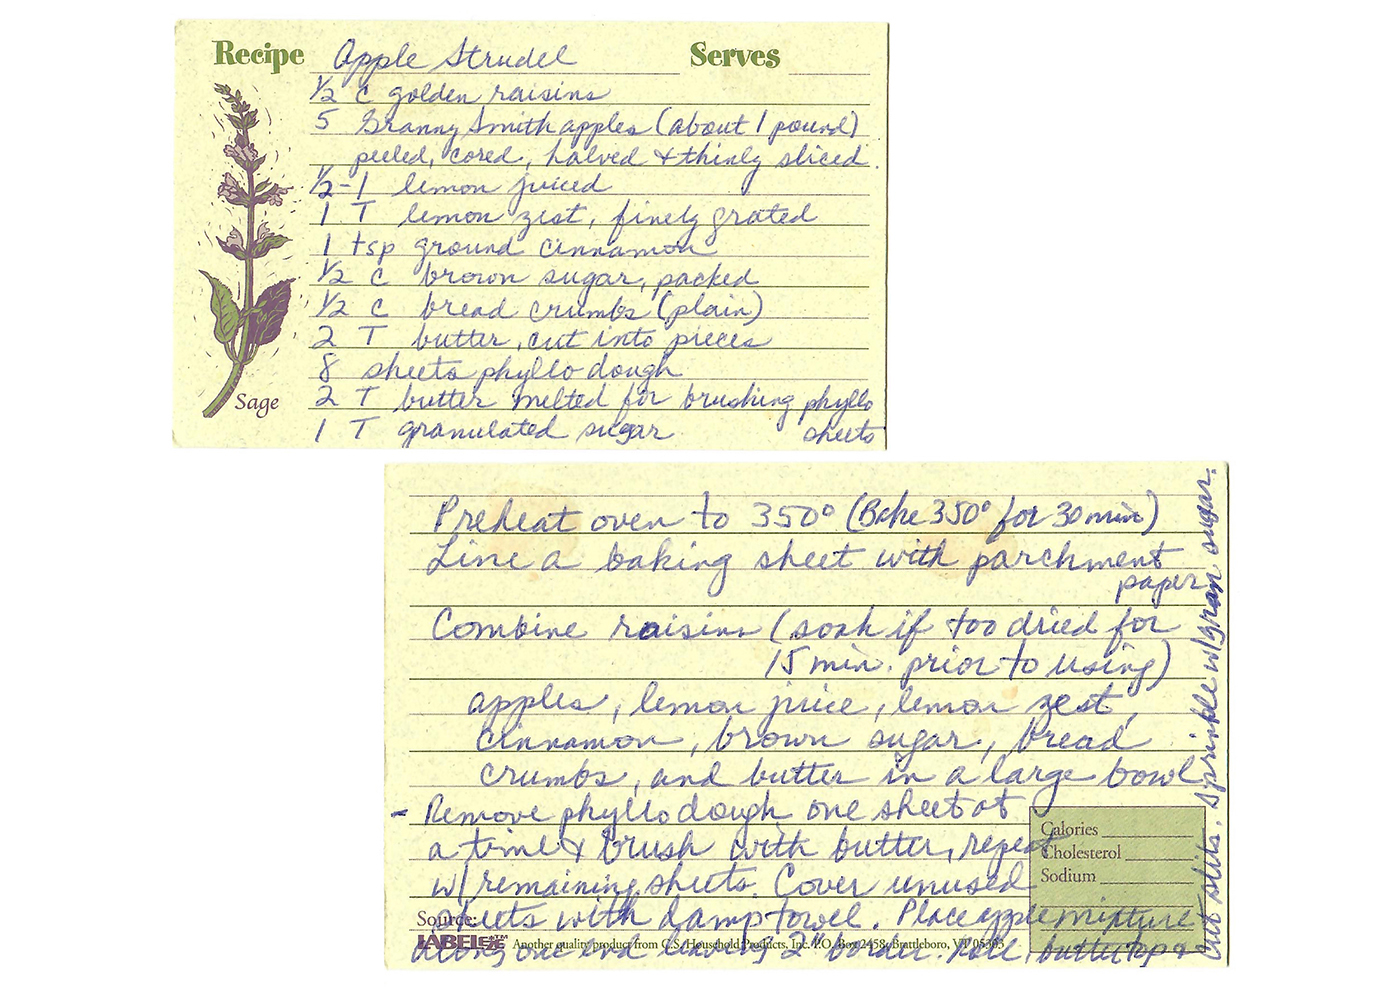 Recipe Apple Strudel Serves
1/2 c golden raisins
5 Granny Smith apples (about 1 pound)
peeled, cored, halved & thinly sliced.
1/2-1 lemon juiced
1 T lemon zest, finely grated
1 tsp ground cinnamon
1/2 c brown sugar, packed
1/2 c bread crumbs (plain)
2 T butter, cut into pieces
8 sheets phyllo dough
2 T butter melted for brushing phyllo
sheets
1 T granulated sugar
Sage
Preheat oven to 350° (Bake 350° for 30 min)
Line a baking sheet with parchment
paper
Combine raisins (soak if too dried for
15 min. prior to using)
apples, lemon juice, lemon zest,
cinnamon, brown sugar, bread
crumbs, and butter in a large bowl
- Remove phyllo dough one sheet at
a time & brush with butter, repeat
w/ remaining sheets. Cover unused
sheets with damp towel. Place apple mixture
along one end leaving 2" border. Roll, butter top &
cut slits. Sprinkle w/ gran sugar.
Calories
Cholesterol
Sodium
Source:
LABELeze™ Another quality product from C.S. Household Products, Inc. P.O. Box 2458, Brattleboro, VT 05303